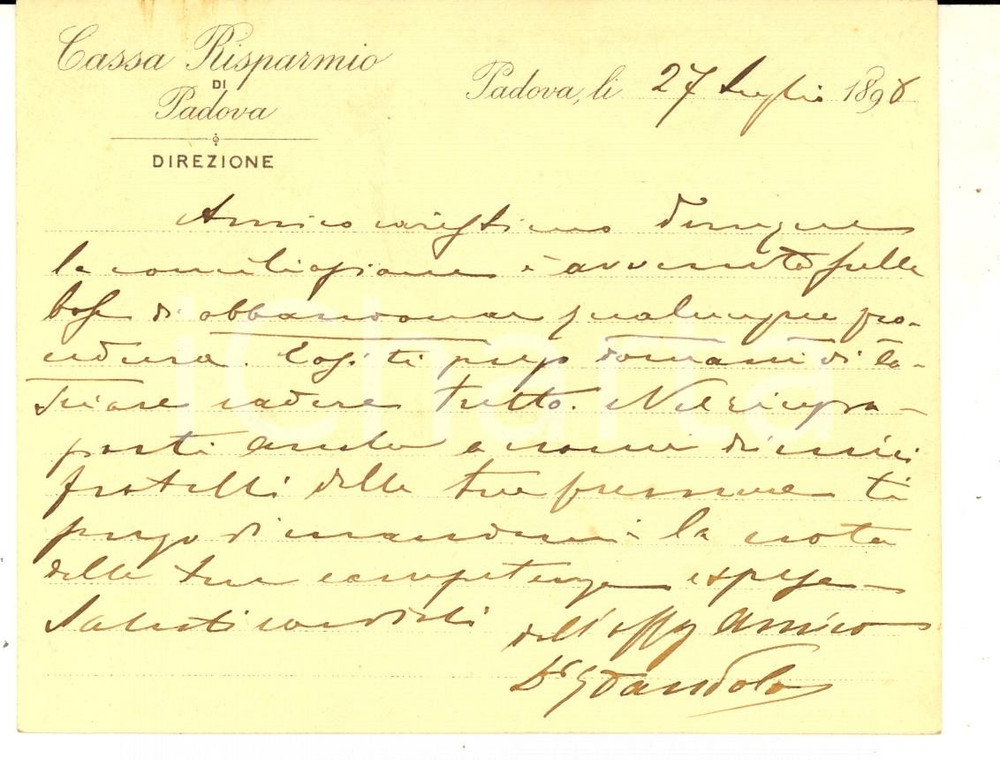 Cassa Risparmio
DI
Padova
DIREZIONE
Padova, li 27 Luglio 1898
Amico carissimo
la conciliazione è avvenuta sulla
base di abbandonar qualunque pro-
cedura. Così ti prego domani di la-
sciare cadere tutto. Nel
anche a nome dei miei
fratelli delle tue premure ti
prego di mandarmi la nota
delle tue competenze e spese
Saluti cordiali
dell'aff Amico
Dr G Dandolo
iCharta